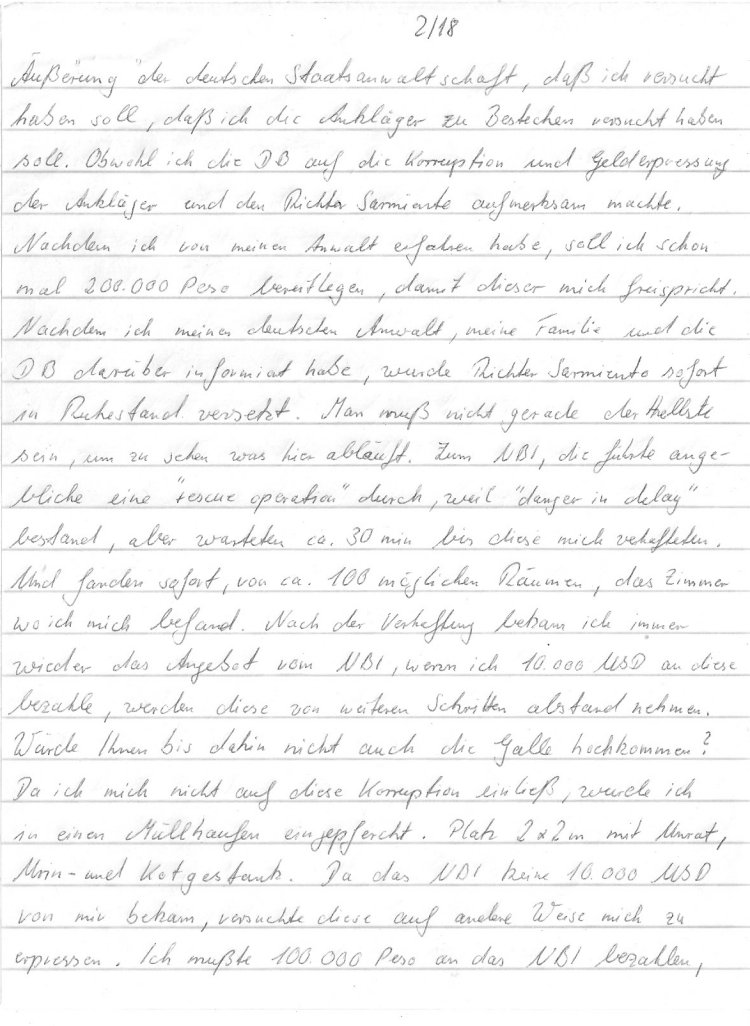 2/18
Äußerung der deutschen Staatsanwaltschaft, daß ich versucht
haben soll, daß ich die Ankläger zu Bestechen versucht haben
soll. Obwohl ich die DB auf die Korruption und Gelderpressung
der Ankläger und den Richter Sarmiento aufmerksam machte.
Nachdem ich von meinen Anwalt erfahren habe, soll ich schon
mal 200.000 Peso bereitlegen, damit dieser mich freispricht.
Nachdem ich meinen deutschen Anwalt, meine Familie und die
DB darüber informiert habe, wurde Richter Sarmiento sofort
in Ruhestand versetzt. Man muß nicht gerade der Hellste
sein, um zu sehen was hier abläuft. Zum NBI, die führte ange-
bliche eine "rescue operation" durch, weil "danger in delay"
bestand, aber warteten ca. 30 min bis diese mich verhafteten.
Und fanden sofort, von ca. 100 möglichen Räumen, das Zimmer
wo ich mich befand. Nach der Verhaftung bekam ich immer
wieder das Angebot vom NBI, wenn ich 10.000 USD an diese
bezahle, werden diese von weiteren Schritten abstand nehmen.
Würde Ihnen bis dahin nicht auch die Galle hochkommen?
Da ich mich nicht auf diese Korruption einließ, wurde ich
in einen Müllhaufen eingepfercht. Platz 2x2m mit Unrat,
Urin- und Kotgestank. Da das NBI keine 10.000 USD
von mir bekam, versuchte diese auf andere Weise mich zu
erpressen. Ich mußte 100.000 Peso an das NBI bezahlen,